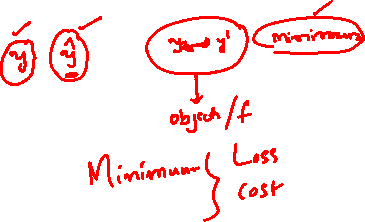 y ŷ y → y' minimum
object/f
Minimum { Loss
cost